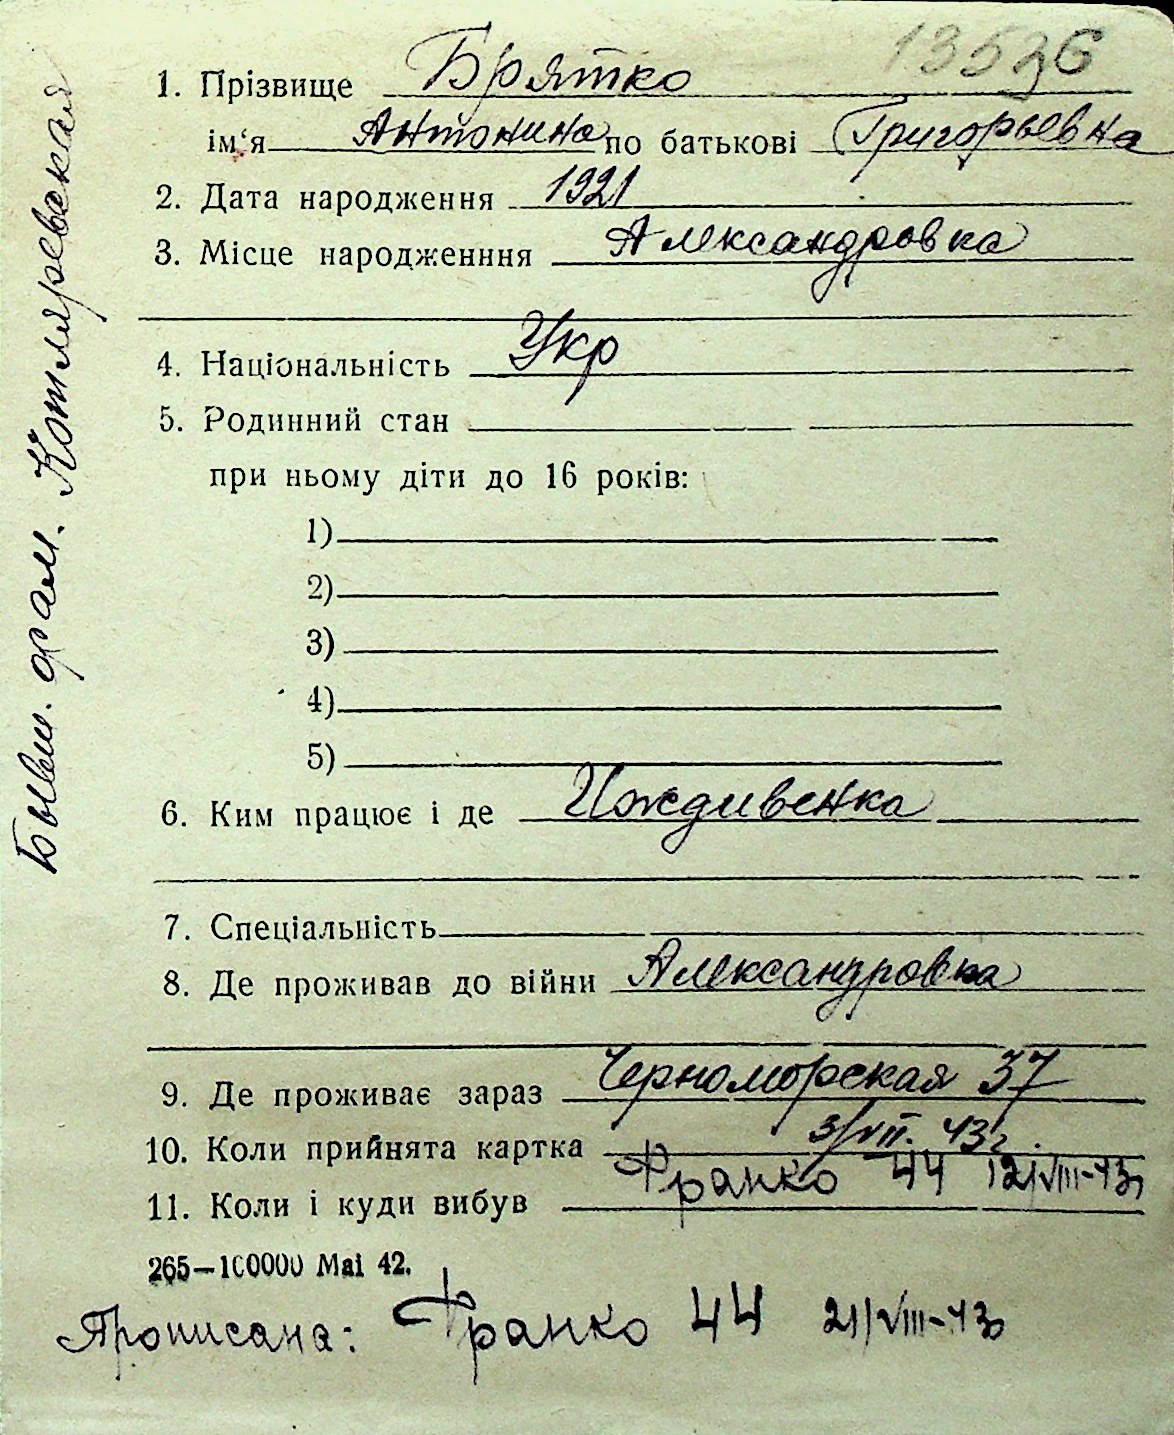 13526
1. Прізвище Брятко
ім‘я Антонина по батькові Григорьевна
2. Дата народження 1921
3. Місце народженння Александровка
4. Національність Укр
5. Родинний стан
при ньому діти до 16 років:
1)
2)
3)
4)
5)
6. Ким працює і де Иждивенка
7. Спеціальність
8. Де проживав до війни Александровка
9. Де проживає зараз Черноморская 37
10. Коли прийнята картка 3/VII. 43г.
11. Коли і куди вибув Франко 44 12/VIII-43
265—100000 Mai 42.
Прописана: Франко 44 21/VIII-43
Бывш. фам. Котляревская